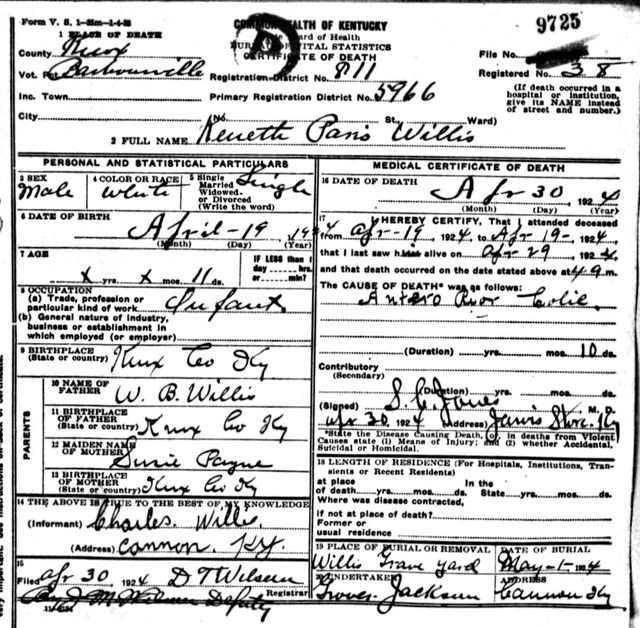 Form V. S. 1-35m-1-4-23
1 PLACE OF DEATH
COMMONWEALTH OF KENTUCKY
9725
County Knox
State Board of Health
BUREAU OF VITAL STATISTICS
CERTIFICATE OF DEATH
File No.
Vot. Pct. Barbourville
Registration District No. 811
Registered No. 38
Inc. Town
Primary Registration District No. 5966
(If death occurred in a hospital or institution, give its NAME instead of street and number.)
City (No. St., Ward)
2 FULL NAME Kenneth Paris Willis
PERSONAL AND STATISTICAL PARTICULARS
3 SEX Male
4 COLOR OR RACE White
5 Single Married Widowed or Divorced (Write the word) Single
6 DATE OF BIRTH
April-19 1924
(Month) (Day) (Year)
7 AGE
x yrs. x mos. 11 ds.
IF LESS than 1 day hrs. or min.?
8 OCCUPATION
(a) Trade, profession or particular kind of work Infant
(b) General nature of industry, business or establishment in which employed (or employer)
9 BIRTHPLACE
(State or country) Knox Co Ky
PARENTS
10 NAME OF FATHER W. B. Willis
11 BIRTHPLACE OF FATHER
(State or country) Knox Co Ky
12 MAIDEN NAME OF MOTHER Susie Payne
13 BIRTHPLACE OF MOTHER
(State or country) Knox Co Ky
14 THE ABOVE IS TRUE TO THE BEST OF MY KNOWLEDGE
(Informant) Charles Willis
(Address) Cannon Ky.
15
Filed Apr 30 1924 D T Wilson
Registrar
Deputy
MEDICAL CERTIFICATE OF DEATH
16 DATE OF DEATH
Apr 30 1924
(Month) (Day) (Year)
17 I HEREBY CERTIFY, That I attended deceased
from Apr-19, 1924, to Apr 19-, 1924
that I last saw him alive on Apr 29, 1924,
and that death occurred on the date stated above at 4 9 m.
The CAUSE OF DEATH* was as follows:
Colic
(Duration) yrs. mos. 10 ds.
Contributory
(Secondary)
(Duration) yrs. mos. ds.
(Signed) S. C. Jones M. D.
Apr 30 1924 (Address) Jarvis Store Ky
*State the Disease Causing Death, or, in deaths from Violent Causes state (1) Means of Injury; and (2) whether Accidental, Suicidal or Homicidal.
18 LENGTH OF RESIDENCE (For Hospitals, Institutions, Transients or Recent Residents)
at place of death yrs. mos. ds. In the State yrs. mos. ds.
Where was disease contracted,
if not at place of death?
Former or
usual residence
19 PLACE OF BURIAL OR REMOVAL
DATE OF BURIAL
Willis Grave Yard May-1-1924
20 UNDERTAKER
ADDRESS
Grover Jackson Cannon Ky